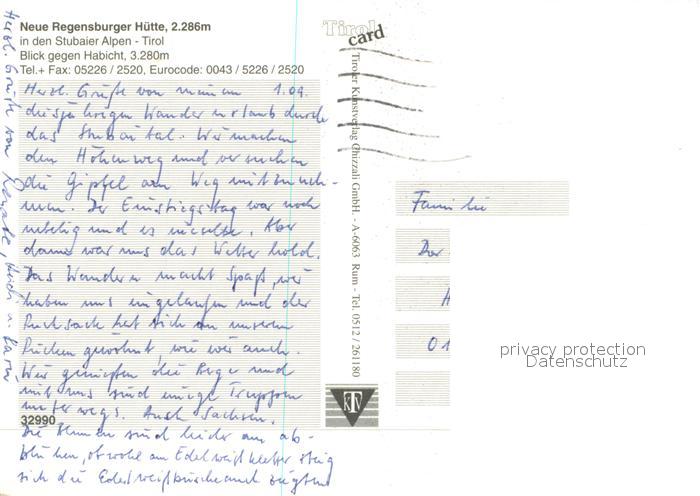 Neue Regensburger Hütte, 2.286m
in den Stubaier Alpen - Tirol
Blick gegen Habicht, 3.280m
Tel.+ Fax: 05226 / 2520, Eurocode: 0043 / 5226 / 2520
Tirol
card
Herzl. Grüße von meinem 1.09.
diesjährigen Wanderurlaub durch
das Stubaital. Wir machen
den Höhenweg und versuchen
die Gipfel am Weg mitzuneh-
men. Der Einstiegstag war noch
neblig und es nieselte. Aber
dann war uns das Wetter hold.
Das Wandern macht Spaß, wir
haben uns eingelaufen und der
Rucksack hat sich an unseren
Rücken gewöhnt, wie wir auch.
Wir genießen die Berge und
mit uns sind einige Truppen
unterwegs. Auch Sachsen.
32990
Die Blumen sind leider am ab-
blühen, obwohl am Edelweißkletter steig
sich die Edelweiß zeigten
Herzl. Grüße von Renate,
Tiroler Kunstverlag Chizzali GmbH. - A-6063 Rum - Tel. 0512 / 261180
KTV
Familie
01
privacy protection
Datenschutz